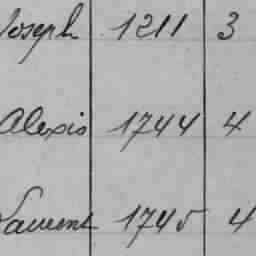 Joseph 1211 3
Alexis 1744 4
Laurent 1745 4